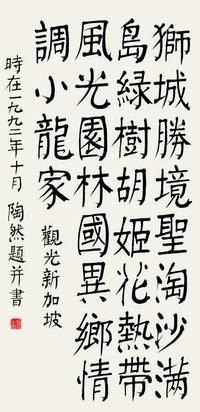 獅城勝境聖淘沙满
島綠樹胡姬花熱帶
風光園林國異鄉情
調小龍家 觀光新加坡
時在一九九二年十月 陶然題并書